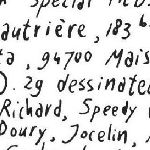 autrière, 183 b
ta, 94700 Mais
). 2g dessinateu
Richard, Speedy
Doury, Jocelin,